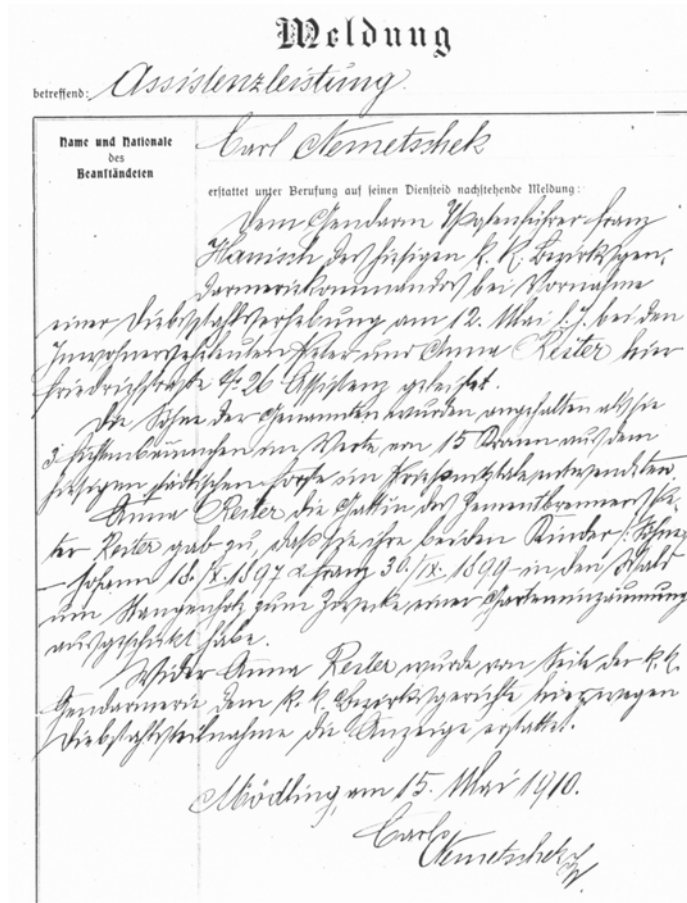 Meldung
betreffend: Assistenzleistung.
Name und Nationale
des
Beanständeten
Carl Nemetschek
erstattet unter Berufung auf seinen Diensteid nachstehende Meldung:
Dem Gendarm Franz
Hanisch des hiesigen k. k. Bezirksgen-
darmeriekommandos bei Vornahme
einer Diebstahlserhebung am 12. Mai l. J. bei den
Inwohnerseheleuten Peter und Anna Reiter hier
Friedrichstraße No 26 Assistenz geleistet.
Die Söhne der Genannten wurden angehalten als sie
3 Fichtenbäumchen im Werte von 15 Kronen aus dem
hiesigen städtischen Forste im entwendeten.
Anna Reiter die Gattin des Zementbrenners Pe-
ter Reiter gab zu, daß sie ihre beiden Kinder /: Söhne
Johann 18./X. 1897 & Franz 30./IX. 1899 – in den Wald
um Stangenholz zum Zwecke einer Garteneinzäunung
ausgeschickt habe.
Wider Anna Reiter wurde von Seite der k. k.
Gendarmerie dem k. k. Bezirksgerichte hier wegen
Diebstahlsteilnahme die Anzeige erstattet.
Mödling, am 15. Mai 1910.
Carl
Nemetschek